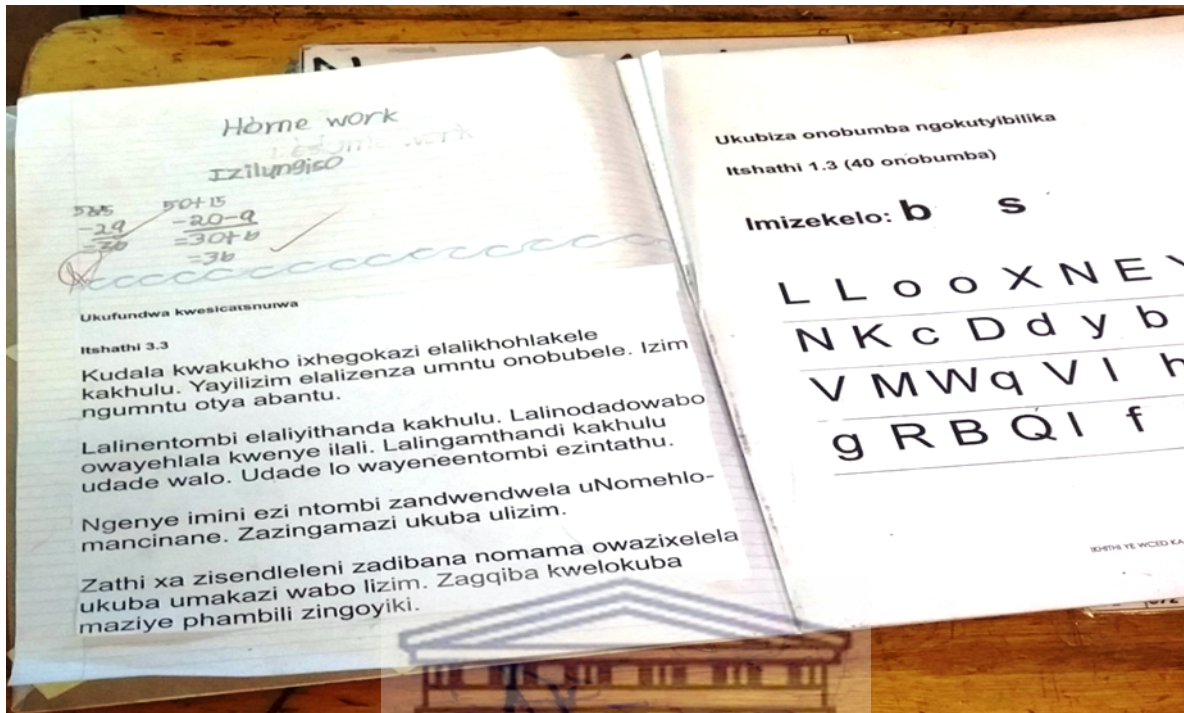 Home work
Izilungiso
565
-29
=36
50+15
-20-9
=30+6
=36
Ukufundwa kwesicatshulwa
Itshathi 3.3
Kudala kwakukho ixhegokazi elalikhohlakele
kakhulu. Yayilizim elalizenza umntu onobubele. Izim
ngumntu otya abantu.
Lalinentombi elaliyithanda kakhulu. Lalinodadowabo
owayehlala kwenye ilali. Lalingamthandi kakhulu
udade walo. Udade lo wayeneentombi ezintathu.
Ngenye imini ezi ntombi zandwendwela uNomehlo-
mancinane. Zazingamazi ukuba ulizim.
Zathi xa zisendleleni zadibana nomama owazixelela
ukuba umakazi wabo lizim. Zagqiba kwelokuba
maziye phambili zingoyiki.
Ukubiza onobumba ngokutyibilika
Itshathi 1.3 (40 onobumba)
Imizekelo: b s
L L o o X N E
N K c D d y b
V M W q V l h
g R B Q l f